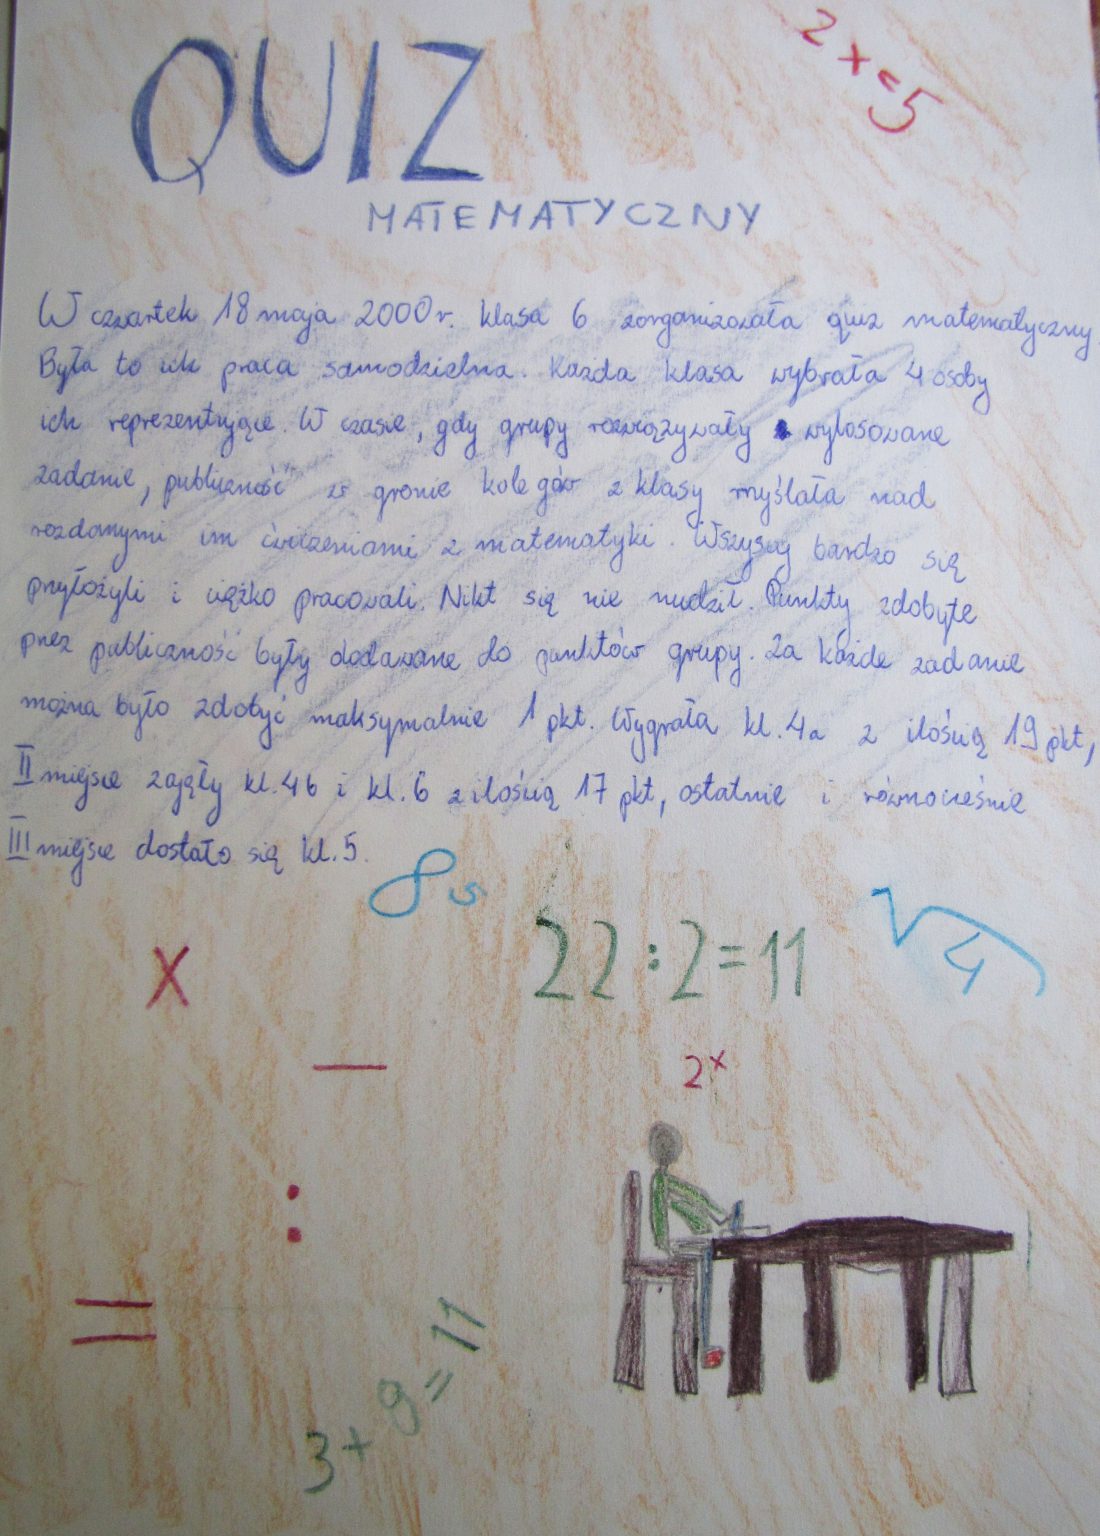 QUIZ
2x=5
MATEMATYCZNY
W czwartek 18 maja 2000r. klasa 6 zorganizowała quiz matematyczny.
Była to ich praca samodzielna. Każda klasa wybrała 4 osoby
ich reprezentujące. W czasie, gdy grupy rozwiązywały wylosowane
zadanie, publiczność w gronie kolegów z klasy myślała nad
rozdanymi im ćwiczeniami z matematyki. Wszyscy bardzo się
przyłożyli i ciężko pracowali. Nikt się nie nudził. Punkty zdobyte
przez publiczność były dodawane do punktów grupy. Za każde zadanie
można było zdobyć maksymalnie 1 pkt. Wygrała kl. 4a z ilością 19 pkt,
II miejsce zajęły kl. 4b i kl. 6 z ilością 17 pkt, ostatnie i równocześnie
III miejsce dostało się kl. 5.
22:2=11
√4
x
—
2ˣ
:
=
3+9=11